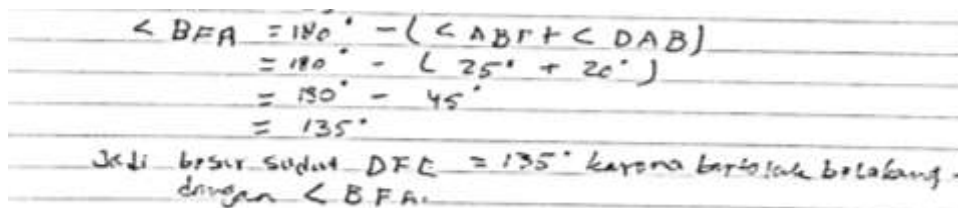 < BFA = 180° - ( < ABF + < DAB )
= 180° - ( 25° + 20° )
= 180° - 45°
= 135°
Jadi besar sudut DFE = 135° karena bertolak belakang.
dengan < BFA.